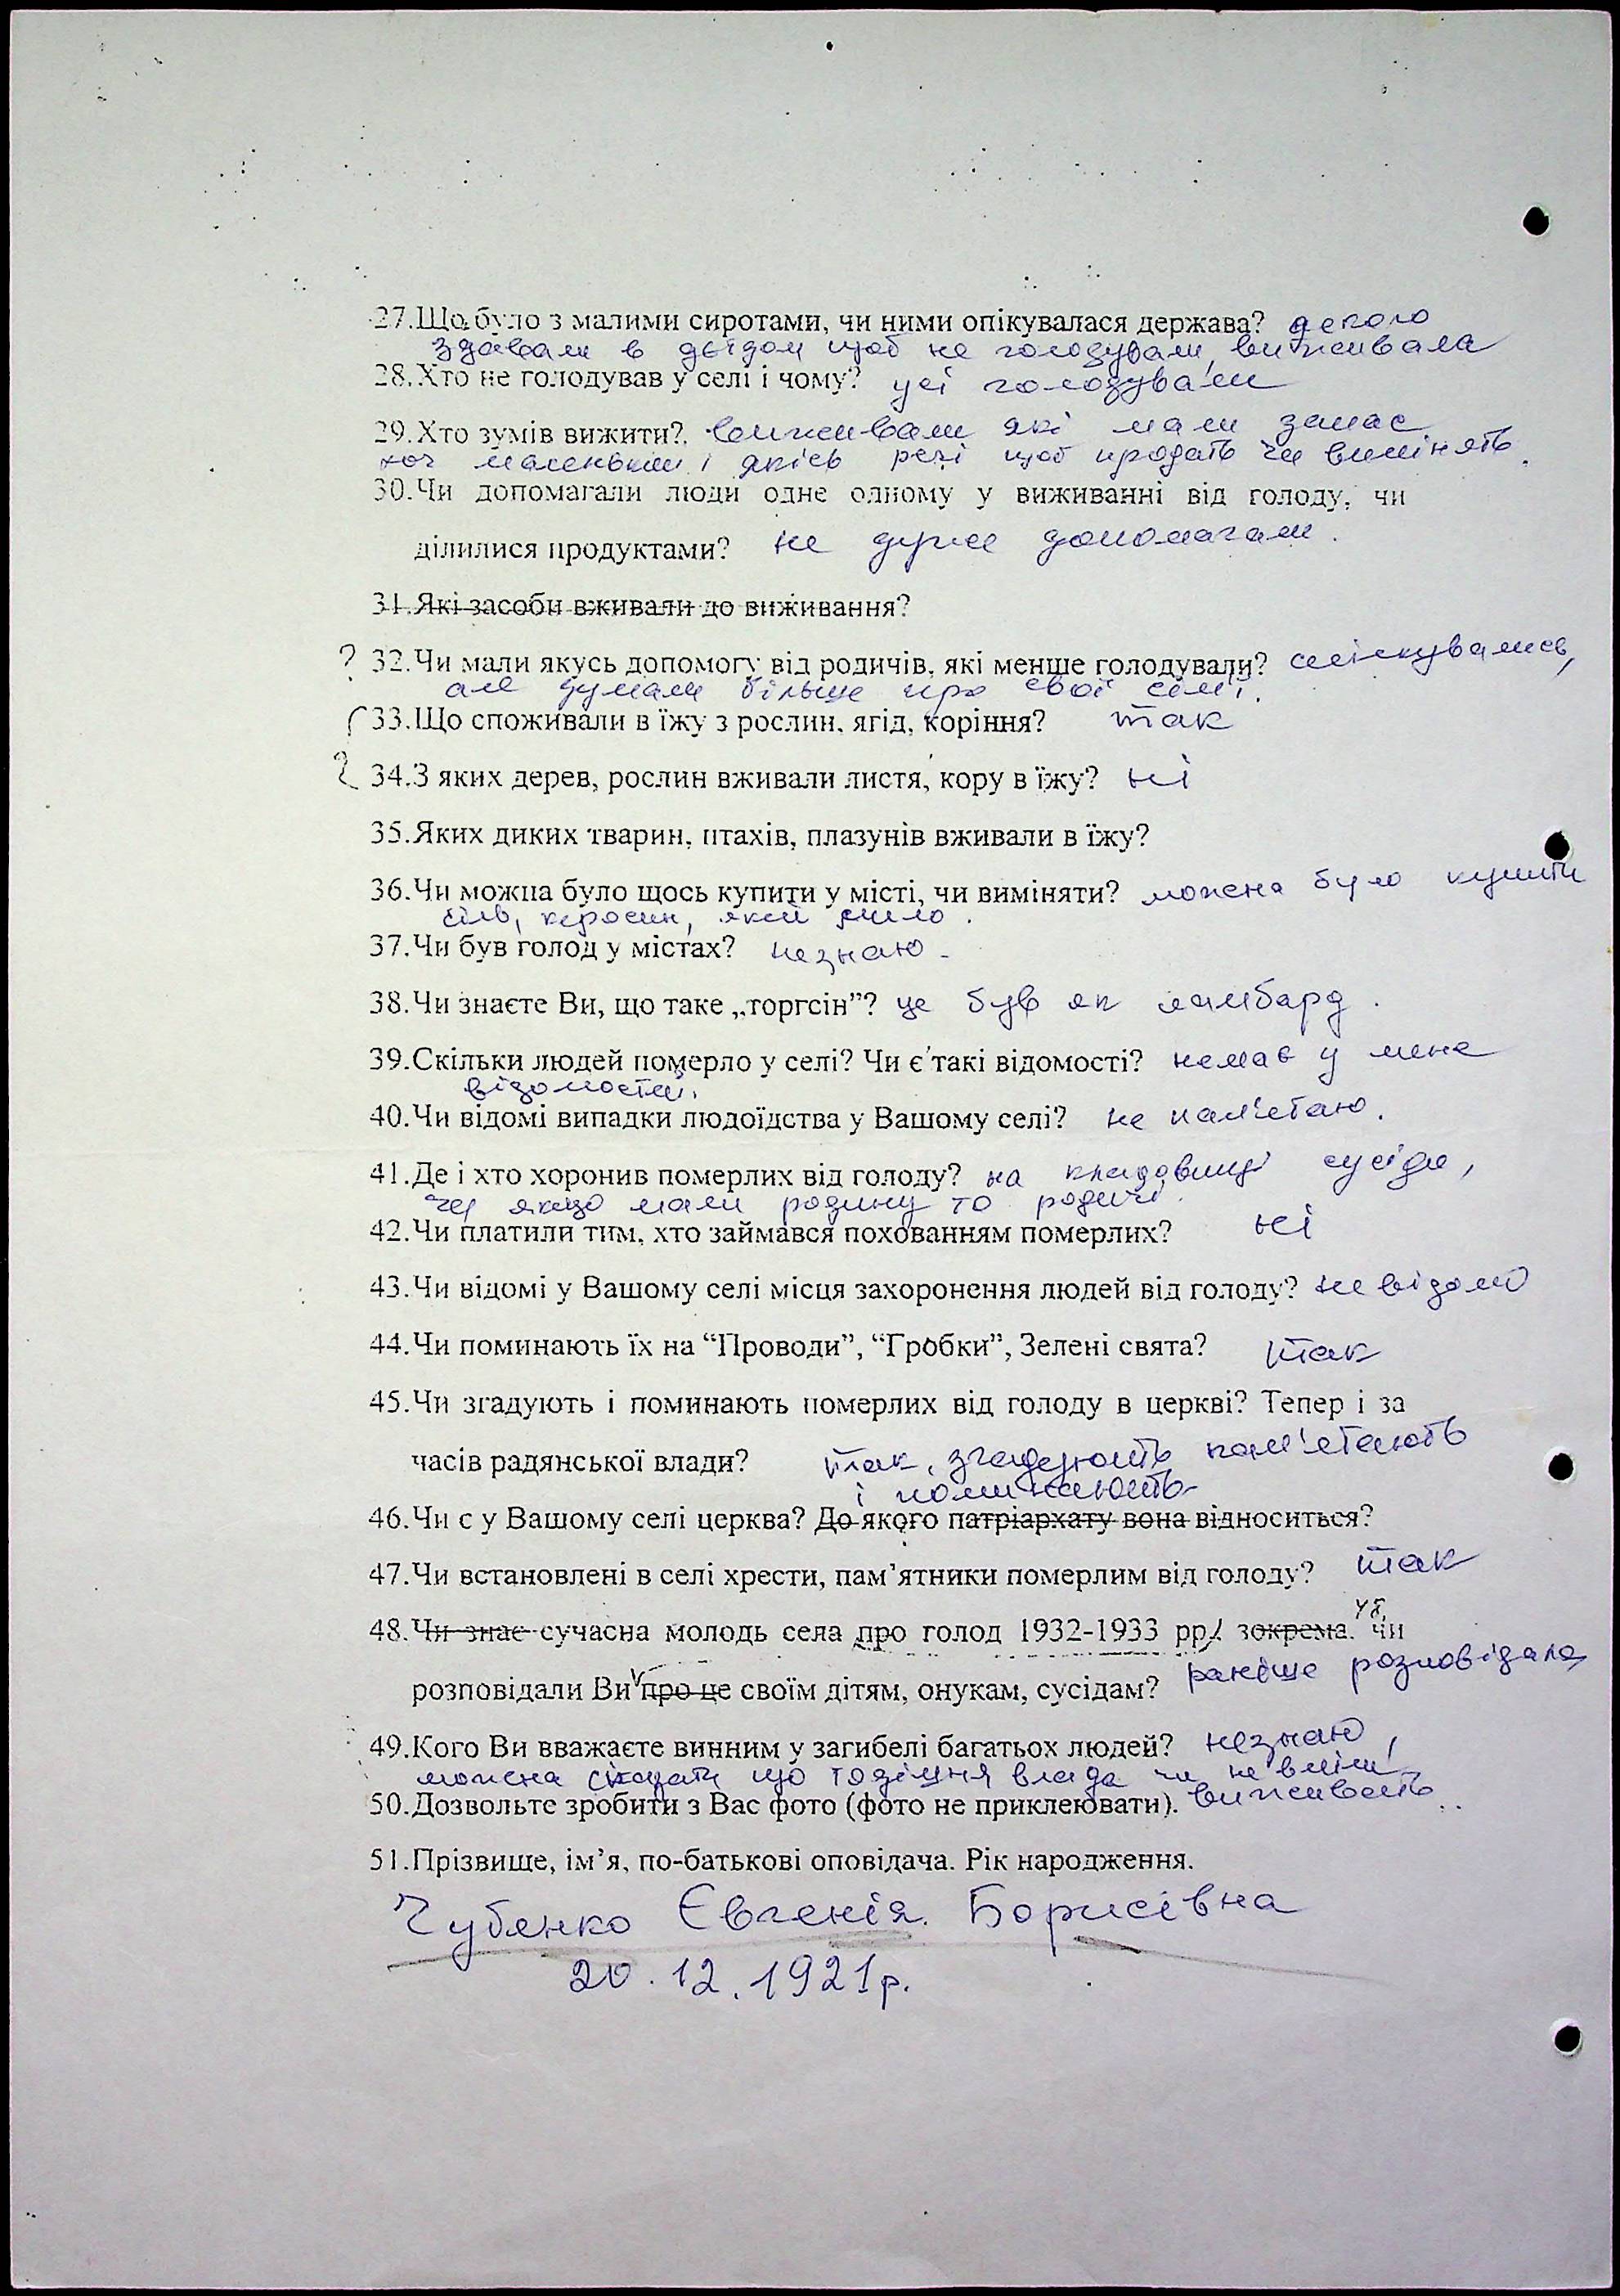 27.Що було з малими сиротами, чи ними опікувалася держава? декого
здавали в дєтдом щоб не голодували, виживала
28.Хто не голодував у селі і чому? усі голодували
29.Хто зумів вижити? виживали які мали запас
хоч маленький і якісь речі щоб продать чи вимінять.
30.Чи допомагали люди одне одному у виживанні від голоду, чи
ділилися продуктами? не дуже допомагали.
31.Які засоби вживали до виживання?
? 32.Чи мали якусь допомогу від родичів, які менше голодували? спілкувались,
але думали більше про свої сім'ї.
33.Що споживали в їжу з рослин, ягід, коріння? так
34.З яких дерев, рослин вживали листя, кору в їжу? ні
35.Яких диких тварин, птахів, плазунів вживали в їжу?
36.Чи можна було щось купити у місті, чи виміняти? можна було купити
сіль, керосин, мило.
37.Чи був голод у містах? незнаю.
38.Чи знаєте Ви, що таке „торгсін”? це був як ламбард.
39.Скільки людей померло у селі? Чи є такі відомості? немає у мене
відомостей.
40.Чи відомі випадки людоїдства у Вашому селі? не пам'етаю.
41.Де і хто хоронив померлих від голоду? на кладовищі сусіди,
чи якщо мали родину то родичі.
42.Чи платили тим, хто займався похованням померлих? ні
43.Чи відомі у Вашому селі місця захоронення людей від голоду? не відомо
44.Чи поминають їх на “Проводи”, “Гробки”, Зелені свята? так
45.Чи згадують і поминають померлих від голоду в церкві? Тепер і за
часів радянської влади? так, згадують пам'етають
і поминають
46.Чи є у Вашому селі церква? До якого патріархату вона відноситься?
47.Чи встановлені в селі хрести, пам’ятники померлим від голоду? так
48.Чи знає сучасна молодь села про голод 1932-1933 рр. зокрема. чи
розповідали Ви про це своїм дітям, онукам, сусідам? раніше розповідала
49.Кого Ви вважаєте винним у загибелі багатьох людей? незнаю,
можна сказати що тодішня влада чи не вміли
50.Дозвольте зробити з Вас фото (фото не приклеювати). виживать.
51.Прізвище, ім’я, по-батькові оповідача. Рік народження.
Чубенко Євгенія Борисівна
20.12.1921р.